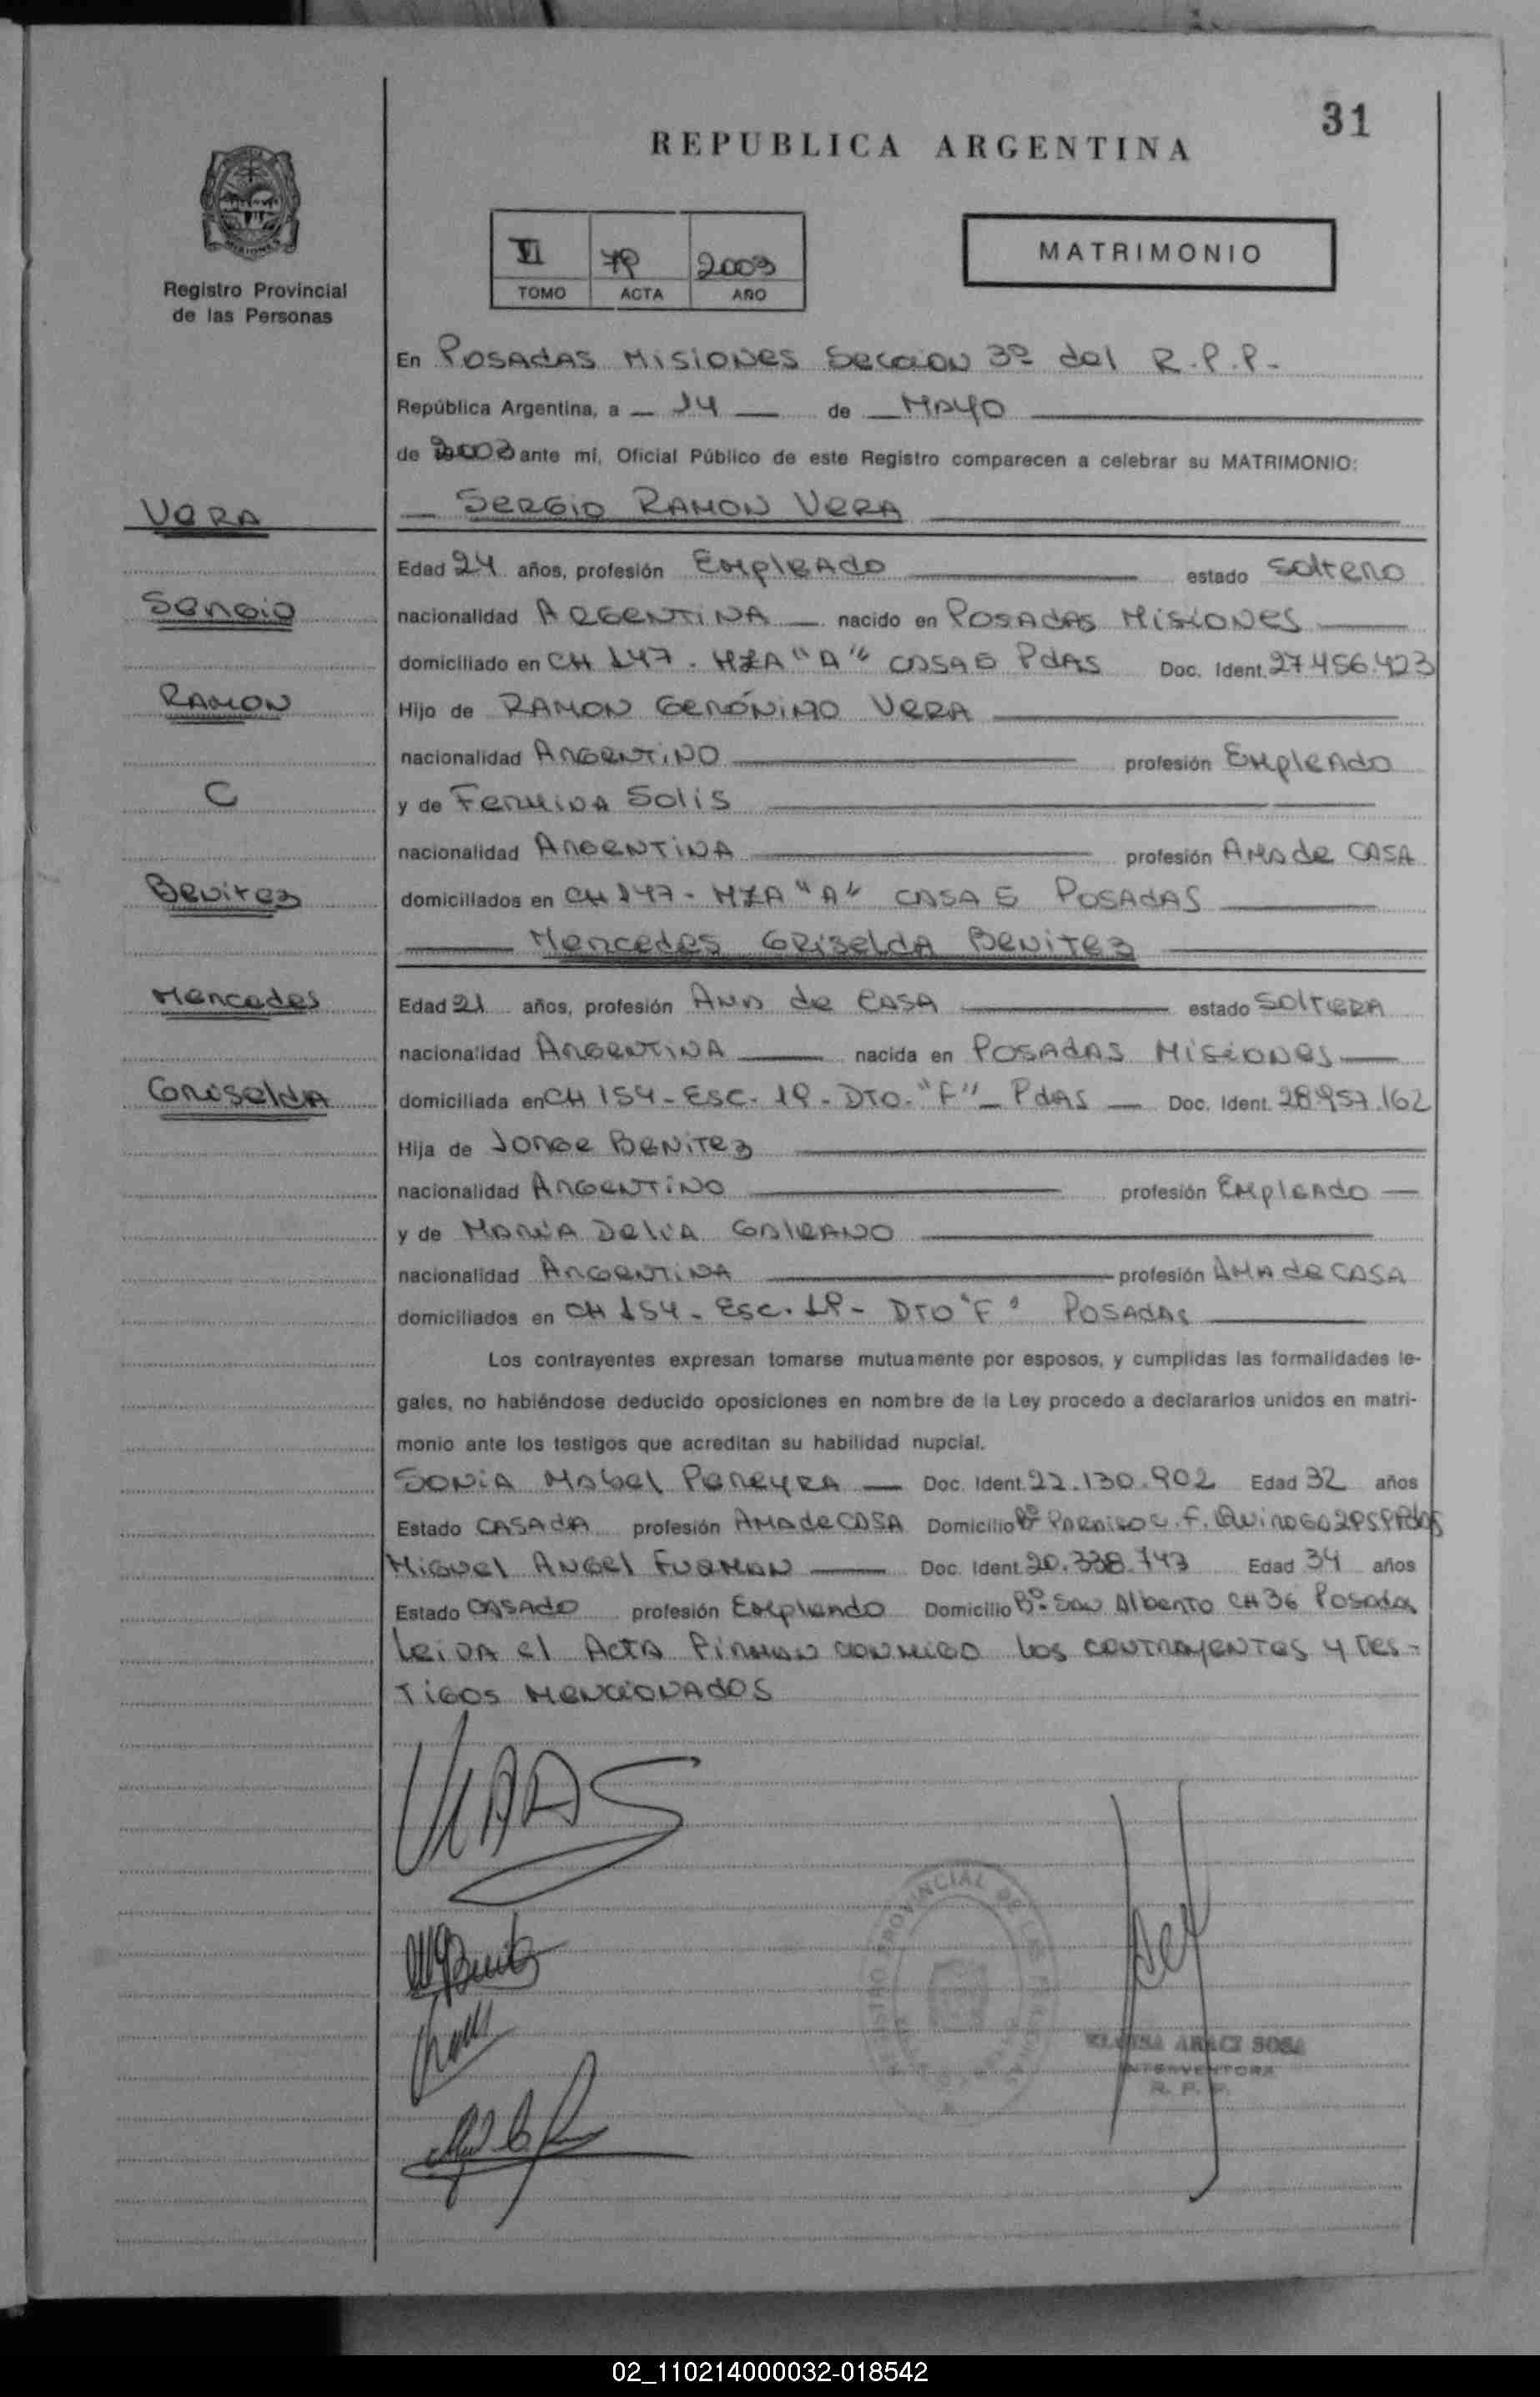 31
REPUBLICA ARGENTINA
Registro Provincial
de las Personas
VI 79 2003
TOMO ACTA AÑO
MATRIMONIO
En POSADAS MISIONES Seccion 3º del R.P.P.-
República Argentina, a 14 de MAYO
de 2003 ante mí, Oficial Público de este Registro comparecen a celebrar su MATRIMONIO:
VERA
SERGIO RAMON VERA
Edad 24 años, profesión Empleado estado Soltero
Sergio
nacionalidad ARGENTINA nacido en POSADAS MISIONES
domiciliado en CH 147. MZA "A" CASA 5 PdAS Doc. Ident. 27.456.423
RAMON
Hijo de RAMON GERÓNIMO VERA
nacionalidad ARGENTINO profesión Empleado
C
y de Fermina Solis
nacionalidad ARGENTINA profesión AMA de CASA
Benitez
domiciliados en CH 147- MZA "A" CASA 5 POSADAS
Mercedes GRISELDA BENITEZ
Mercedes
Edad 21 años, profesión AMA de CASA estado SOLTERA
nacionalidad ARGENTINA nacida en POSADAS MISIONES
Griselda
domiciliada en CH 154- ESC. 19- DTO. "F" - PdAS Doc. Ident. 28.957.162
Hija de Jorge BENITEZ
nacionalidad ARGENTINO profesión Empleado
y de MARÍA Delia GALEANO
nacionalidad ARGENTINA profesión AMA de CASA
domiciliados en CH 154- Esc. 19- DTO "F" POSADAS
Los contrayentes expresan tomarse mutuamente por esposos, y cumplidas las formalidades le-
gales, no habiéndose deducido oposiciones en nombre de la Ley procedo a declararlos unidos en matri-
monio ante los testigos que acreditan su habilidad nupcial.
SONIA Mabel PEREYRA Doc. Ident. 22.130.902 Edad 32 años
Estado CASADA profesión AMA de CASA Domicilio Bº
MIGUEL ANGEL Doc. Ident. 20.338.743 Edad 34 años
Estado CASADO profesión Empleado Domicilio Bº San Alberto CH 36 Posadas
Leida el Acta Firman conmigo los contrayentes y tes-
tigos mencionados
ARACI SOSA
INTERVENTORA
R. P. P.
02_110214000032-018542